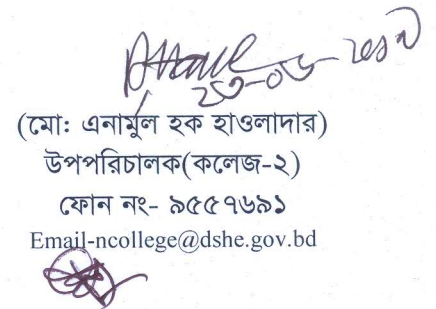 ২৩-০৬-২০১৯
(মো: এনামুল হক হাওলাদার)
উপপরিচালক(কলেজ-২)
ফোন নং- ৯৫৫৭৬৯১
Email-ncollege@dshe.gov.bd